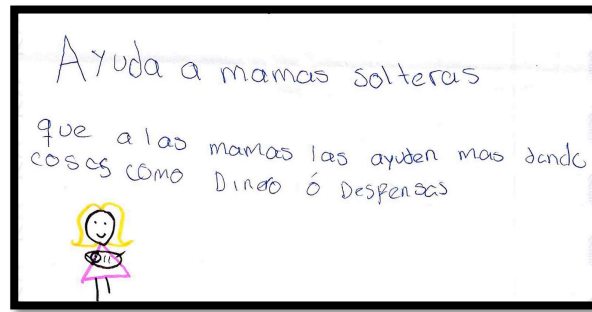 Ayuda a mamas solteras
que a las mamas las ayuden mas dando
cosas como Dinero ó Despensas